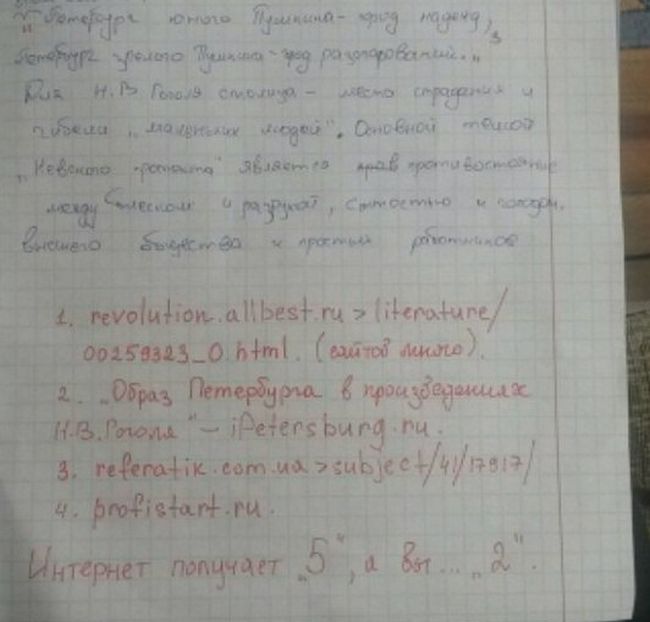 „Петербург юного Пушкина - город надежд,
Петербург зрелого Пушкина - город разочарований."
Для Н.В Гоголя столица - место страдания и
гибели „маленьких людей". Основной темой
„Невского проспекта" является нрав противостояние
между блеском и разрухой, сытостью и голодом,
высшего общества и простых работников
1. revolution.allbest.ru > literature/
00259323_0.html. (сайтов много).
2. „Образ Петербурга в произведениях
Н.В.Гоголя" - iPetersburg.ru.
3. referatik.com.ua > subject/41/17917/
4. profistart.ru.
Интернет получает „5", а вы... „2".